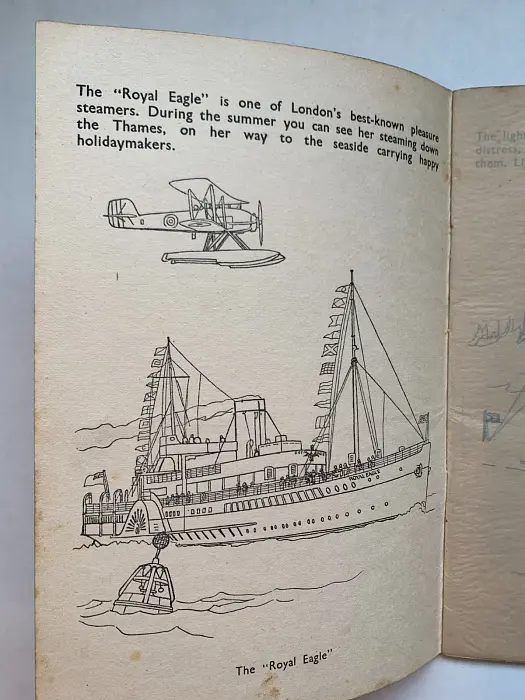 The "Royal Eagle" is one of London's best-known pleasure
steamers. During the summer you can see her steaming down
the Thames, on her way to the seaside carrying happy
holidaymakers.
ROYAL EAGLE
The "Royal Eagle"
The light
distress,
them.